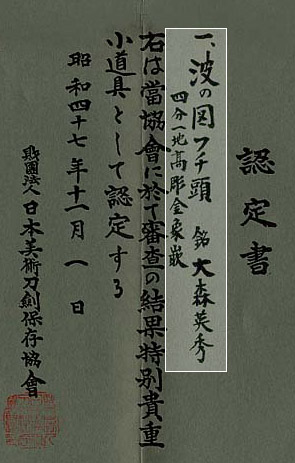 認定書
一、波の図フチ頭 銘 大森英秀
四分一地高彫金象嵌
右は當協會に於て審査の結果特別貴重
小道具として認定する
昭和四十七年十一月一日
財團法人日本美術刀劍保存協會